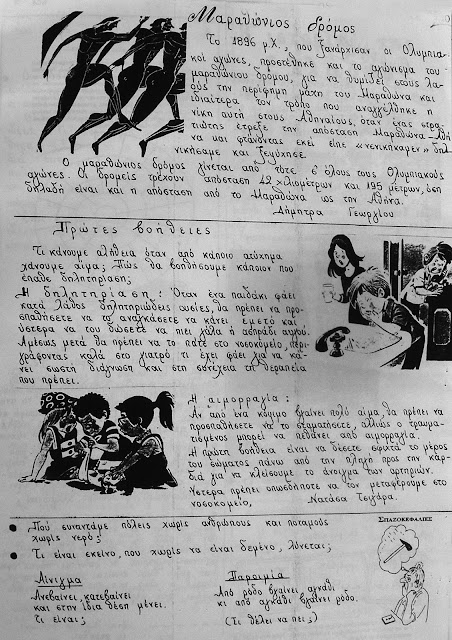 Μαραθώνιος δρόμος
Το 1896 μ.Χ., που ξανάρχισαν οι Ολυμπια-
κοί αγώνες, προστέθηκε και το αγώνισμα του
μαραθώνιου δρόμου, για να θυμίζει στους λα-
ούς την περίφημη μάχη του Μαραθώνα και
ιδιαίτερα τον τρόπο που αναγγέλθηκε η
νίκη αυτή στους Αθηναίους, όταν ένας στρα-
τιώτης έτρεξε την απόσταση Μαραθώνα-Αθή
να και φτάνοντας εκεί είπε «νενικήκαμεν» δηλ.
νικήσαμε και ξεψύχησε.
Ο μαραθώνιος δρόμος γίνεται από τότε σ' όλους τους Ολυμπιακούς
αγώνες. Οι δρομείς τρέχουν απόσταση 42 χιλιομέτρων και 195 μέτρων, όση
δηλαδή είναι και η απόσταση από το Μαραθώνα ως την Αθήνα.
Δήμητρα Γεωργίου
Πρώτες βοήθειες
Τι κάνουμε αλήθεια όταν από κάποιο ατύχημα
χάνουμε αίμα; Πώς θα βοηθήσουμε κάποιον που
έπαθε δηλητηρίαση;
Η δηλητηρίαση: Όταν ένα παιδάκι φάει
κατά λάθος δηλητηριώδεις ουσίες, θα πρέπει να προ-
σπαθήσετε να το αναγκάσετε να κάνει εμετό και
ύστερα να του δώσετε να πιει γάλα ή ασπράδι αυγού.
Αμέσως μετά θα πρέπει να το πάτε στο νοσοκομείο, περι-
γράφοντας καλά στο γιατρό τι έχει φάει για να κά-
νει σωστή διάγνωση και στη συνέχεια τη θεραπεία
που πρέπει.
Η αιμορραγία:
Αν από ένα κόψιμο βγαίνει πολύ αίμα, θα πρέπει να
προσπαθήσετε να το σταματήσετε, αλλιώς ο τραυμα-
τισμένος μπορεί να πεθάνει από αιμορραγία.
Η πρώτη βοήθεια είναι να δέσετε σφιχτά το μέρος
του σώματος πάνω από την πληγή προς την καρ-
διά για να κλείσουμε το άνοιγμα των αρτηριών.
Ύστερα πρέπει οπωσδήποτε να τον μεταφέρουμε στο
νοσοκομείο. Νατάσα
Πού συναντάμε πόλεις χωρίς ανθρώπους και ποταμούς
χωρίς νερό;
Τι είναι εκείνο, που χωρίς να είναι δεμένο, λύνεται;
ΣΠΑΖΟΚΕΦΑΛΙΕΣ
Αίνιγμα
Ανεβαίνει, κατεβαίνει
και στην ίδια θέση μένει.
τι είναι;
Παροιμία
Από ρόδο βγαίνει αγκάθι
κι από αγκάθι βγαίνει ρόδο.
(Τι θέλει να πει;)